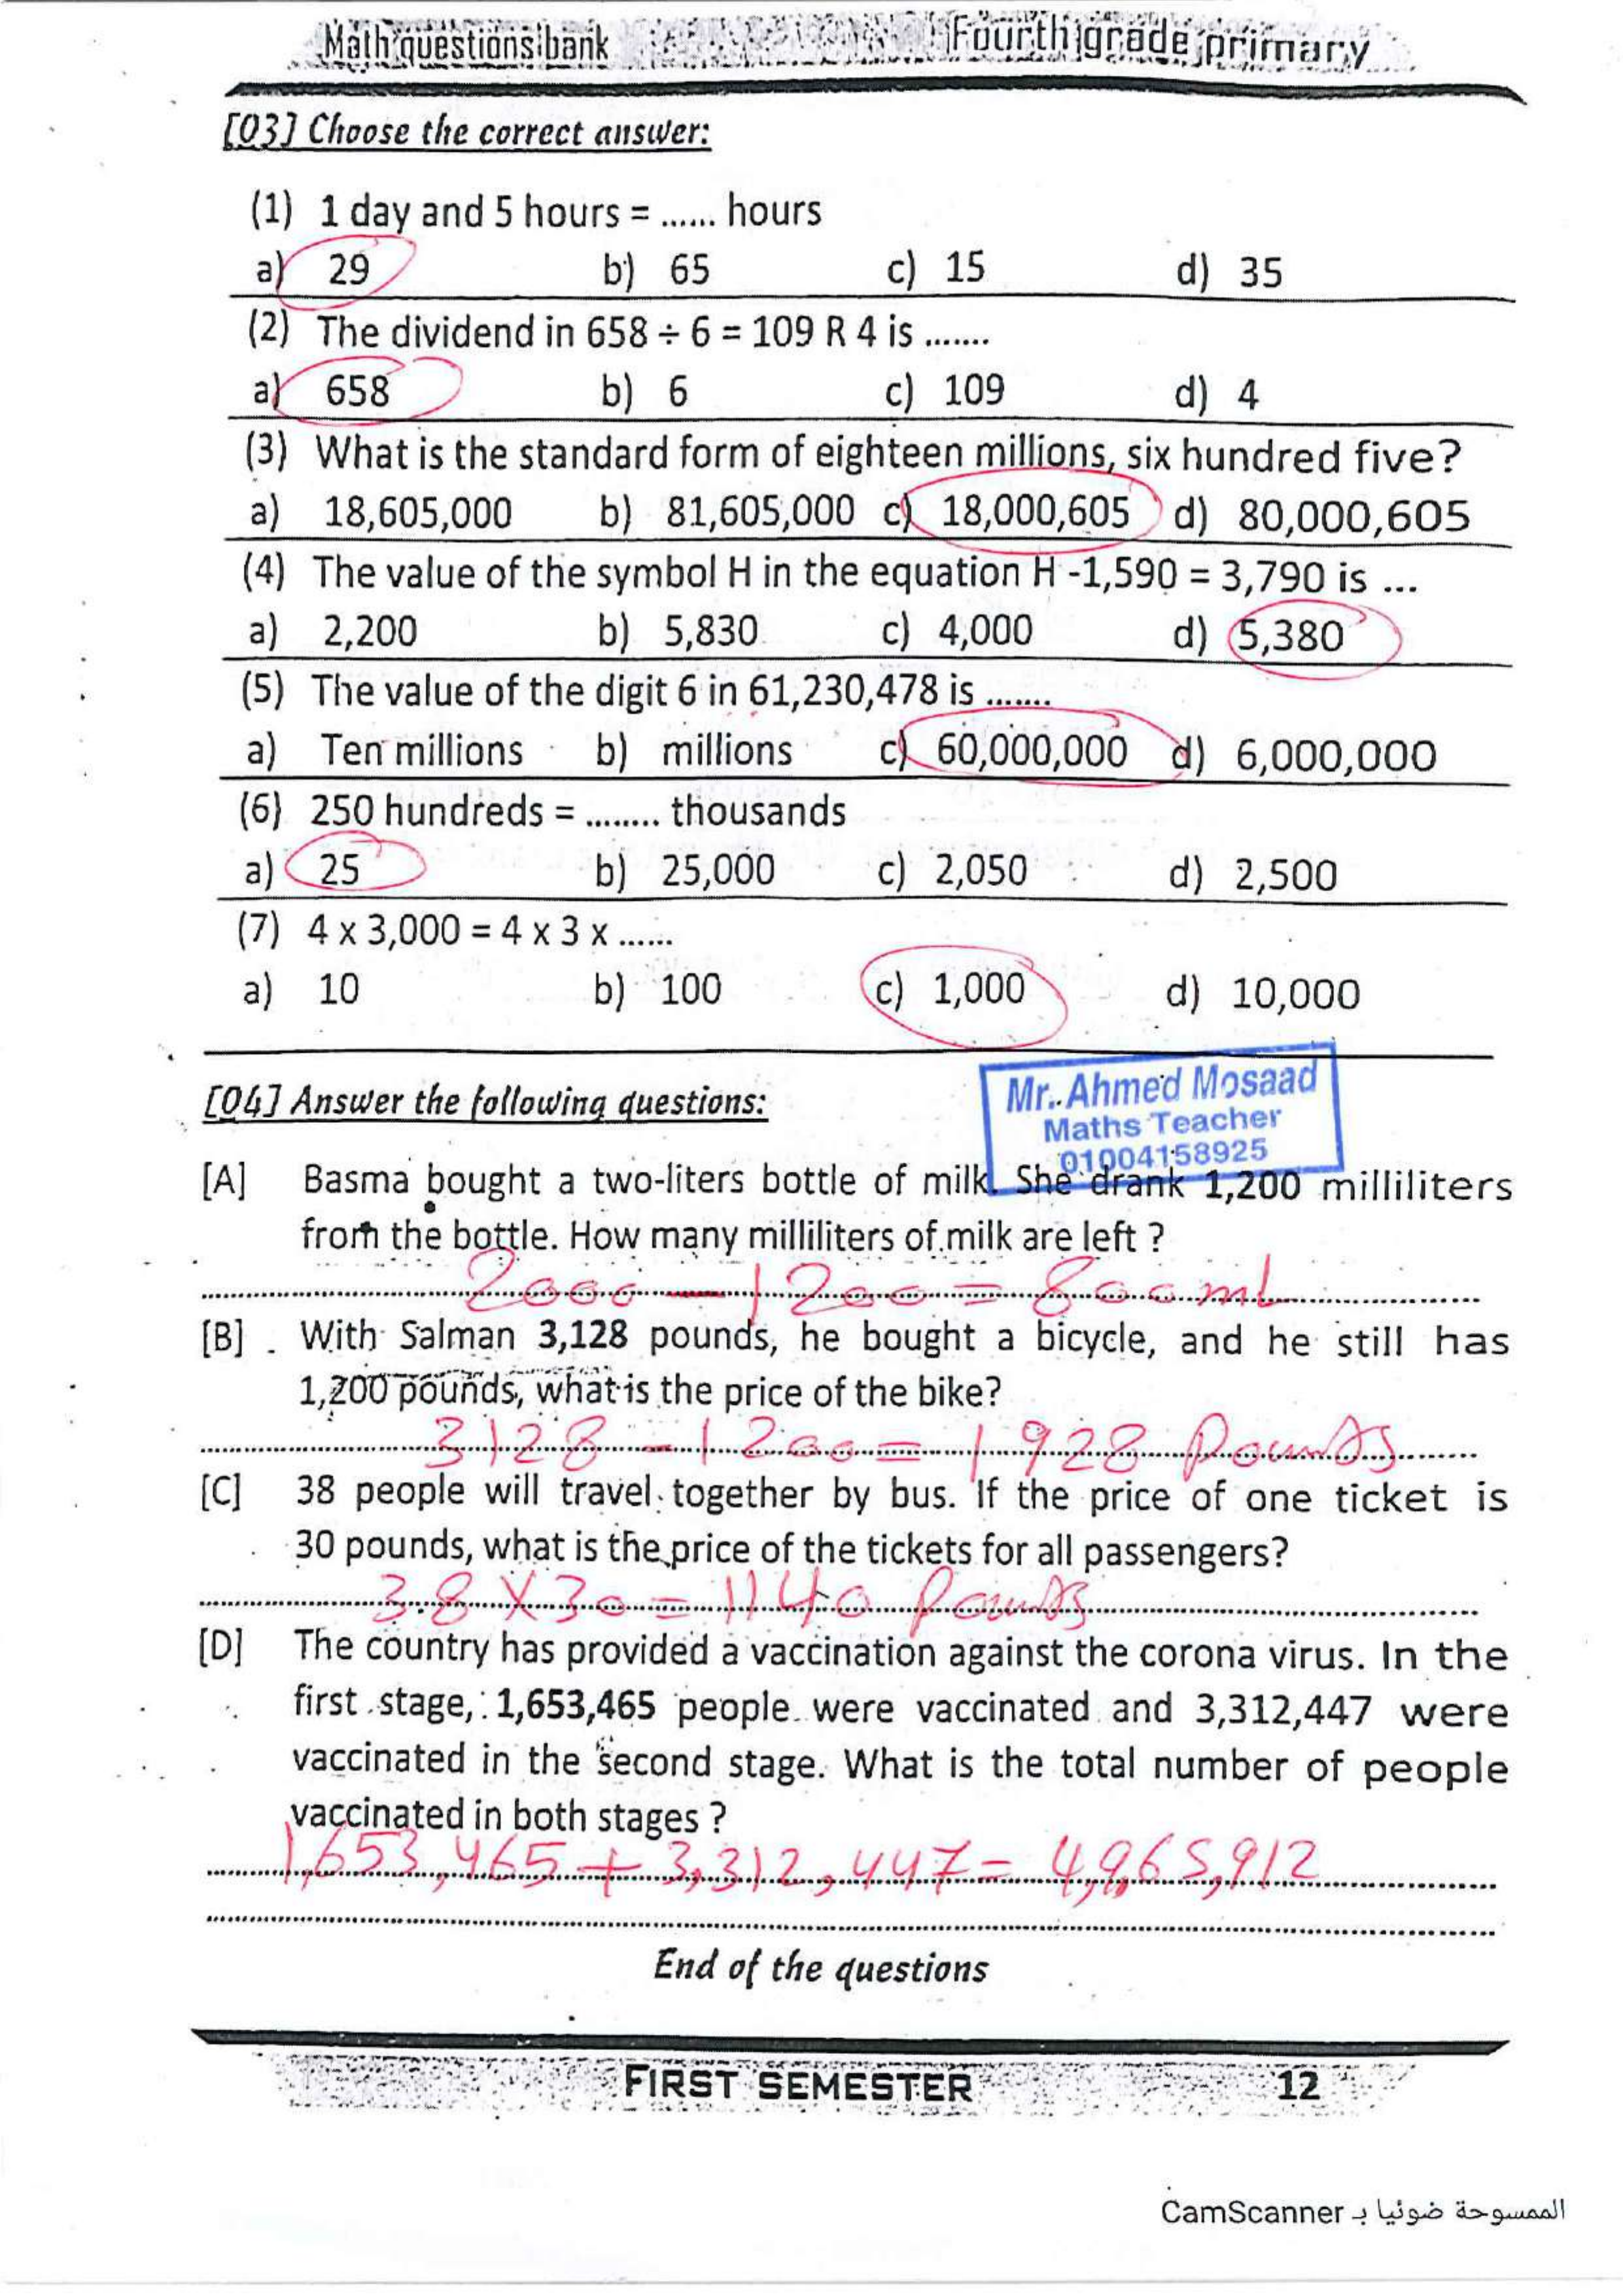 Math questions bank Fourth grade primary
[Q3] Choose the correct answer:
(1) 1 day and 5 hours = ...... hours
a) 29 b) 65 c) 15 d) 35
(2) The dividend in 658 ÷ 6 = 109 R 4 is .......
a) 658 b) 6 c) 109 d) 4
(3) What is the standard form of eighteen millions, six hundred five?
a) 18,605,000 b) 81,605,000 c) 18,000,605 d) 80,000,605
(4) The value of the symbol H in the equation H -1,590 = 3,790 is ...
a) 2,200 b) 5,830 c) 4,000 d) 5,380
(5) The value of the digit 6 in 61,230,478 is .......
a) Ten millions b) millions c) 60,000,000 d) 6,000,000
(6) 250 hundreds = ........ thousands
a) 25 b) 25,000 c) 2,050 d) 2,500
(7) 4 x 3,000 = 4 x 3 x ......
a) 10 b) 100 c) 1,000 d) 10,000
Mr. Ahmed Mosaad
Maths Teacher
01004158925
[Q4] Answer the following questions:
[A] Basma bought a two-liters bottle of milk. She drank 1,200 milliliters
from the bottle. How many milliliters of milk are left ?
2000 - 1200 = 800 mL
[B] With Salman 3,128 pounds, he bought a bicycle, and he still has
1,200 pounds, what is the price of the bike?
3128 - 1200 = 1928 Pounds
[C] 38 people will travel together by bus. If the price of one ticket is
30 pounds, what is the price of the tickets for all passengers?
38 X 30 = 1140 Pounds
[D] The country has provided a vaccination against the corona virus. In the
first stage, 1,653,465 people were vaccinated and 3,312,447 were
vaccinated in the second stage. What is the total number of people
vaccinated in both stages ?
1,653,465 + 3,312,447 = 4,965,912
End of the questions
FIRST SEMESTER 12
الممسوحة ضوئيا بـ CamScanner